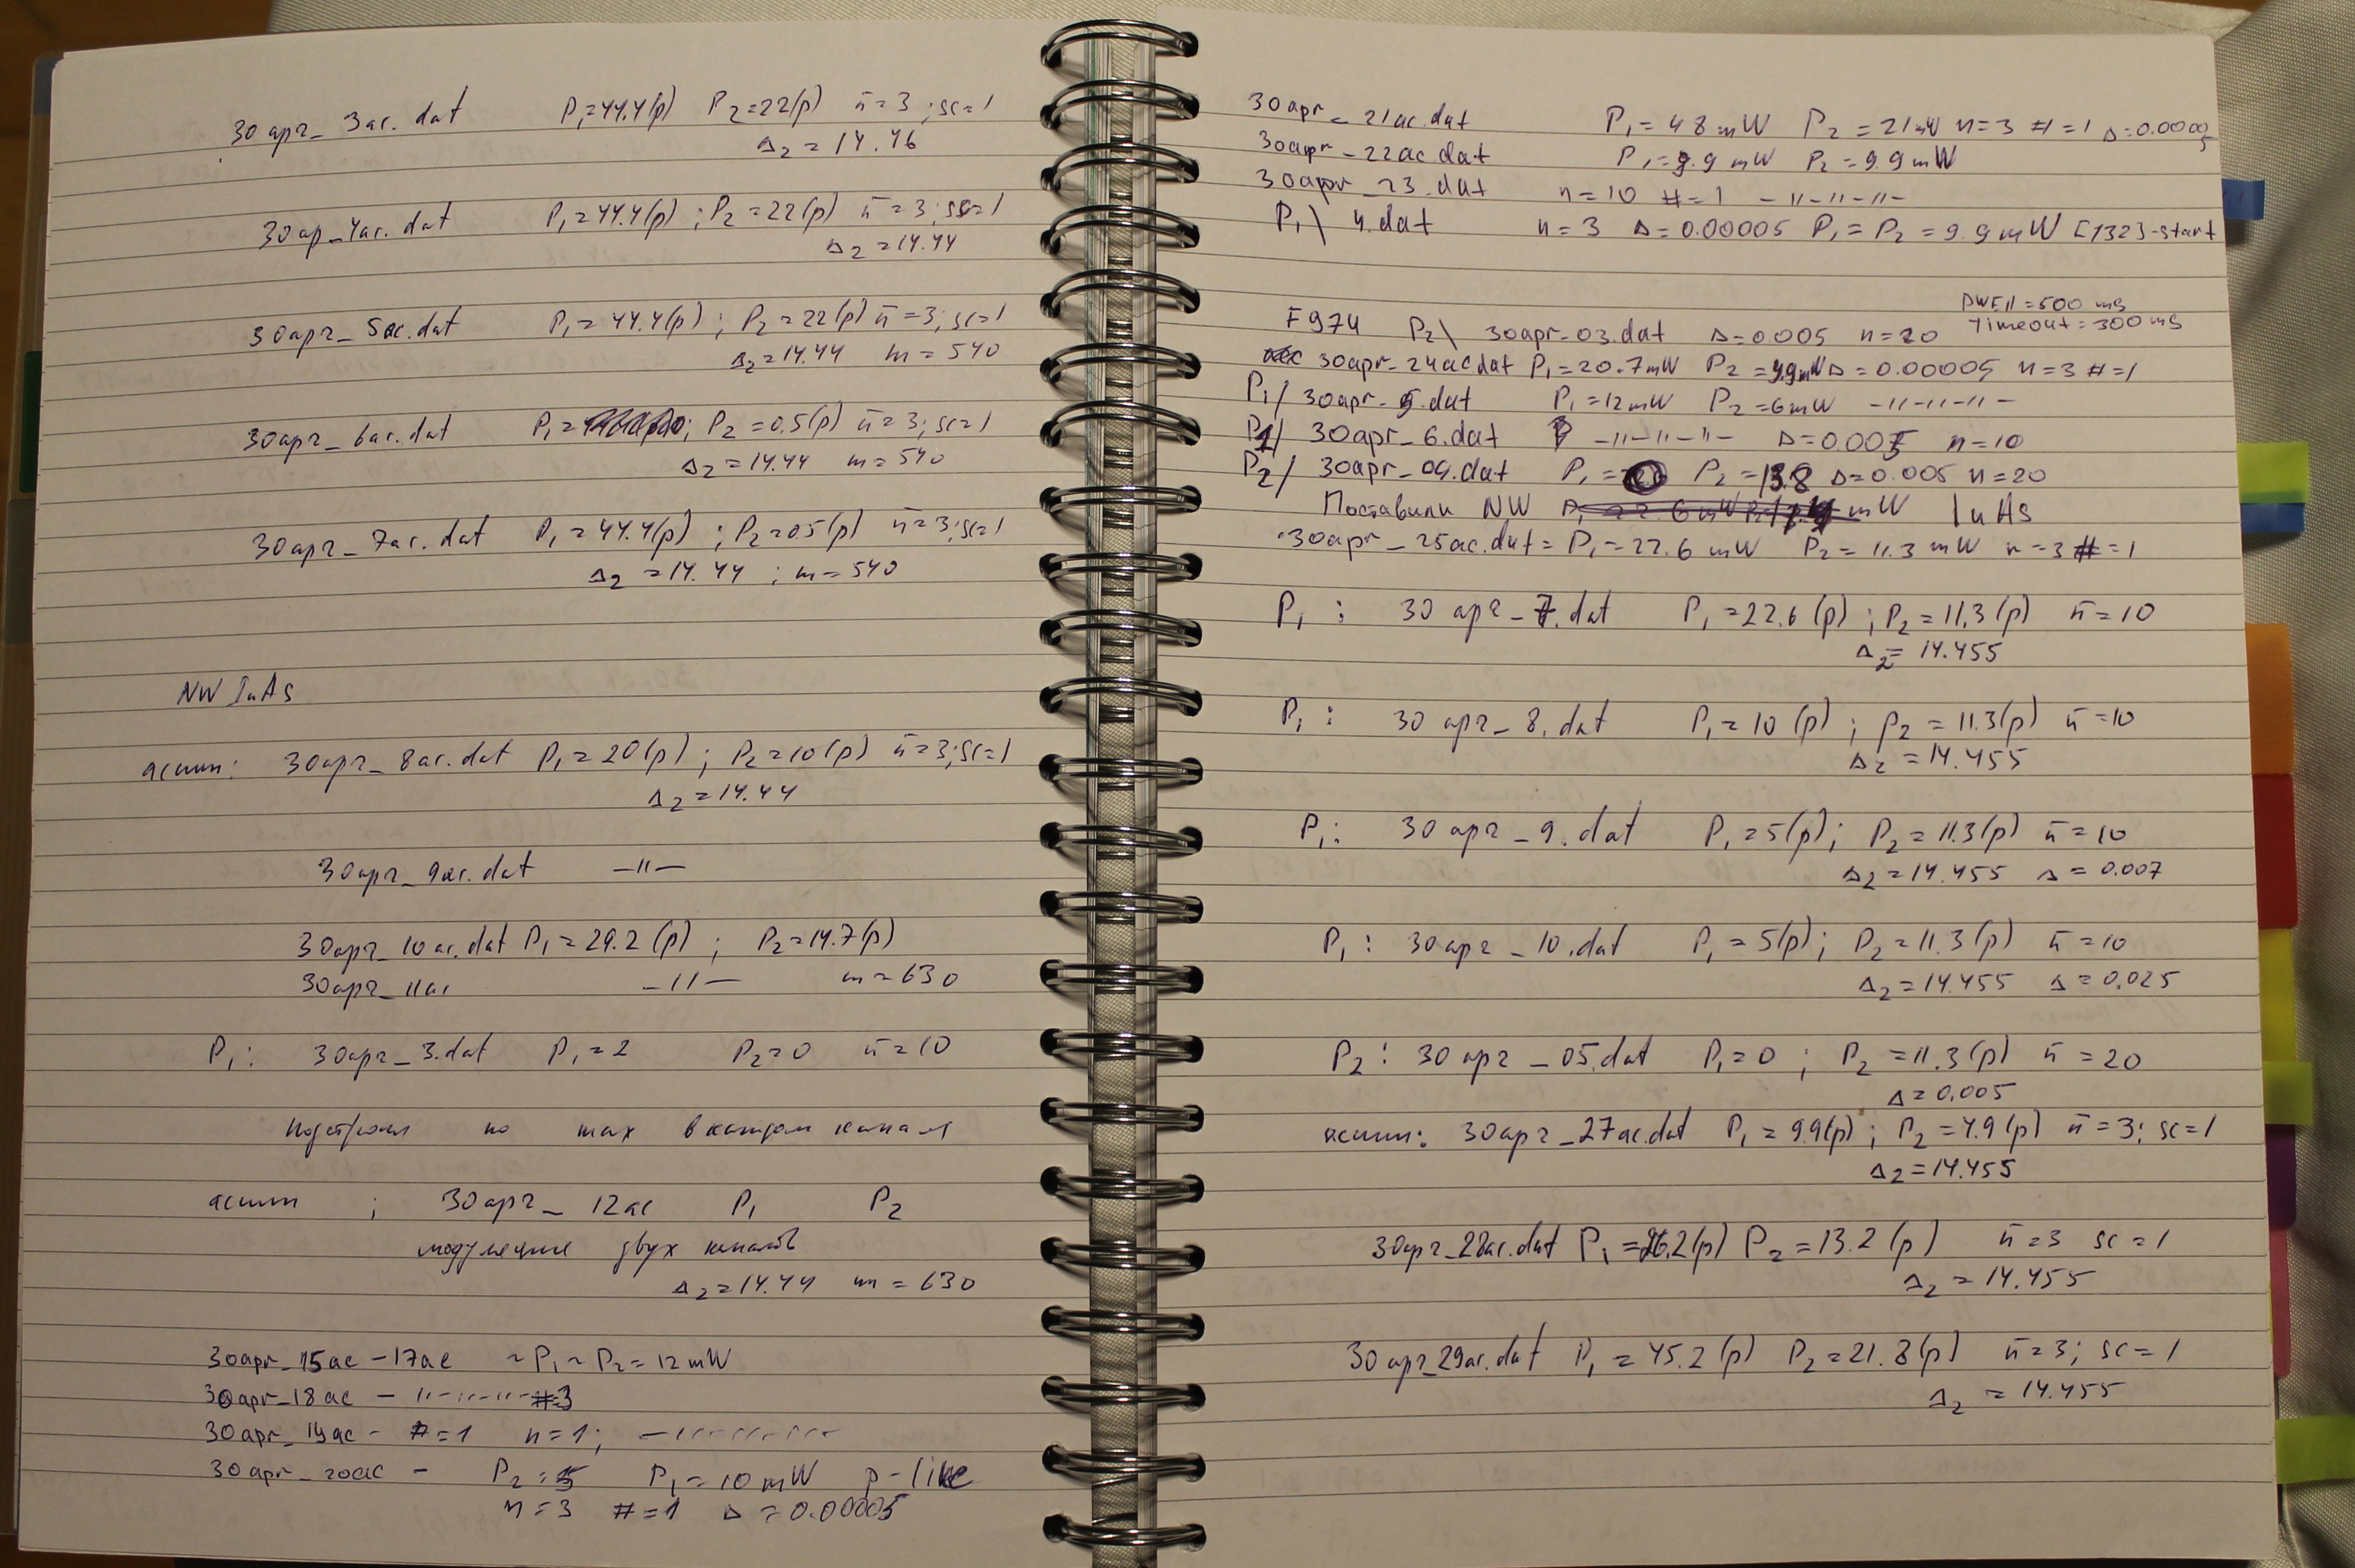 30apr_3ac.dat P₁=44.4(p) P₂=22(p) n̄=3; sc=1
Δ₂=14.46
30ap_4ac.dat P₁=44.4(p); P₂=22(p) n̄=3; sc=1
Δ₂=14.44
30apr_5ac.dat P₁=44.4(p); P₂=22(p) n̄=3; sc=1
Δ₂=14.44 m=540
30apr_6ac.dat P₁= ; P₂=0.5(p) n̄=3; sc=1
Δ₂=14.44 m=540
30apr_7ac.dat P₁=44.4(p); P₂=0.5(p) n̄=3; sc=1
Δ₂=14.44; m=540
NW InAs
асимм: 30apr_8ac.dat P₁=20(p); P₂=10(p) n̄=3; sc=1
Δ₂=14.44
30apr_9ac.dat –"–
30apr_10ac.dat P₁=29.2(p); P₂=14.7(p)
30apr_11ac –"– m=630
P₁: 30apr_3.dat P₁=2 P₂=0 n̄=10
по max в каждом канале
асимм; 30apr_12ac P₁ P₂
модуляция двух каналов
Δ₂=14.44 m=630
30apr_15ac-17ac ~P₁~P₂=12mW
30apr_18ac –"–"–"– #=3
30apr_19ac - #=1 n=1; –"–"–"–
30apr_20ac – P₂=5 P₁=10mW p-like
n=3 #=1 Δ=0.00005
30apr_21ac.dat P₁=48mW P₂=21mW n=3 #=1 Δ=0.00005
30apr_22ac.dat P₁=9.9mW P₂=9.9mW
30apr_23.dat n=10 #=1 –"–"–"–
P₁\ 4.dat n=3 Δ=0.00005 P₁=P₂=9.9mW [132]-start
DWEll=500 ms
F974 P₂\ 30apr-03.dat Δ=0.005 n=20 Timeout=300ms
30apr-24ac.dat P₁=20.7mW P₂=9.9mW Δ=0.00005 n=3 #=1
P₁/ 30apr-5.dat P₁=12mW P₂=6mW –"–"–"–
P₁/ 30apr_6.dat –"–"–"– Δ=0.005 n=10
P₂/ 30apr_04.dat P₁= P₂=13.8 Δ=0.005 n=20
Поставили NW mW InAs
30apr_25ac.dat= P₁=22.6mW P₂=11.3mW n=3 #=1
P₁: 30apr_7.dat P₁=22.6(p); P₂=11.3(p) n̄=10
Δ₂=14.455
P₁: 30apr_8.dat P₁=10(p); P₂=11.3(p) n̄=10
Δ₂=14.455
P₁: 30apr_9.dat P₁=5(p); P₂=11.3(p) n̄=10
Δ₂=14.455 Δ=0.007
P₁: 30apr_10.dat P₁=5(p); P₂=11.3(p) n̄=10
Δ₂=14.455 Δ=0.025
P₂: 30apr_05.dat P₁=0; P₂=11.3(p) n̄=20
Δ=0.005
асимм: 30apr_27ac.dat P₁=9.9(p); P₂=4.9(p) n̄=3; sc=1
Δ₂=14.455
30apr_28ac.dat P₁=26.2(p) P₂=13.2(p) n̄=3 sc=1
Δ₂=14.455
30apr_29ac.dat P₁=45.2(p) P₂=21.8(p) n̄=3; sc=1
Δ₂=14.455